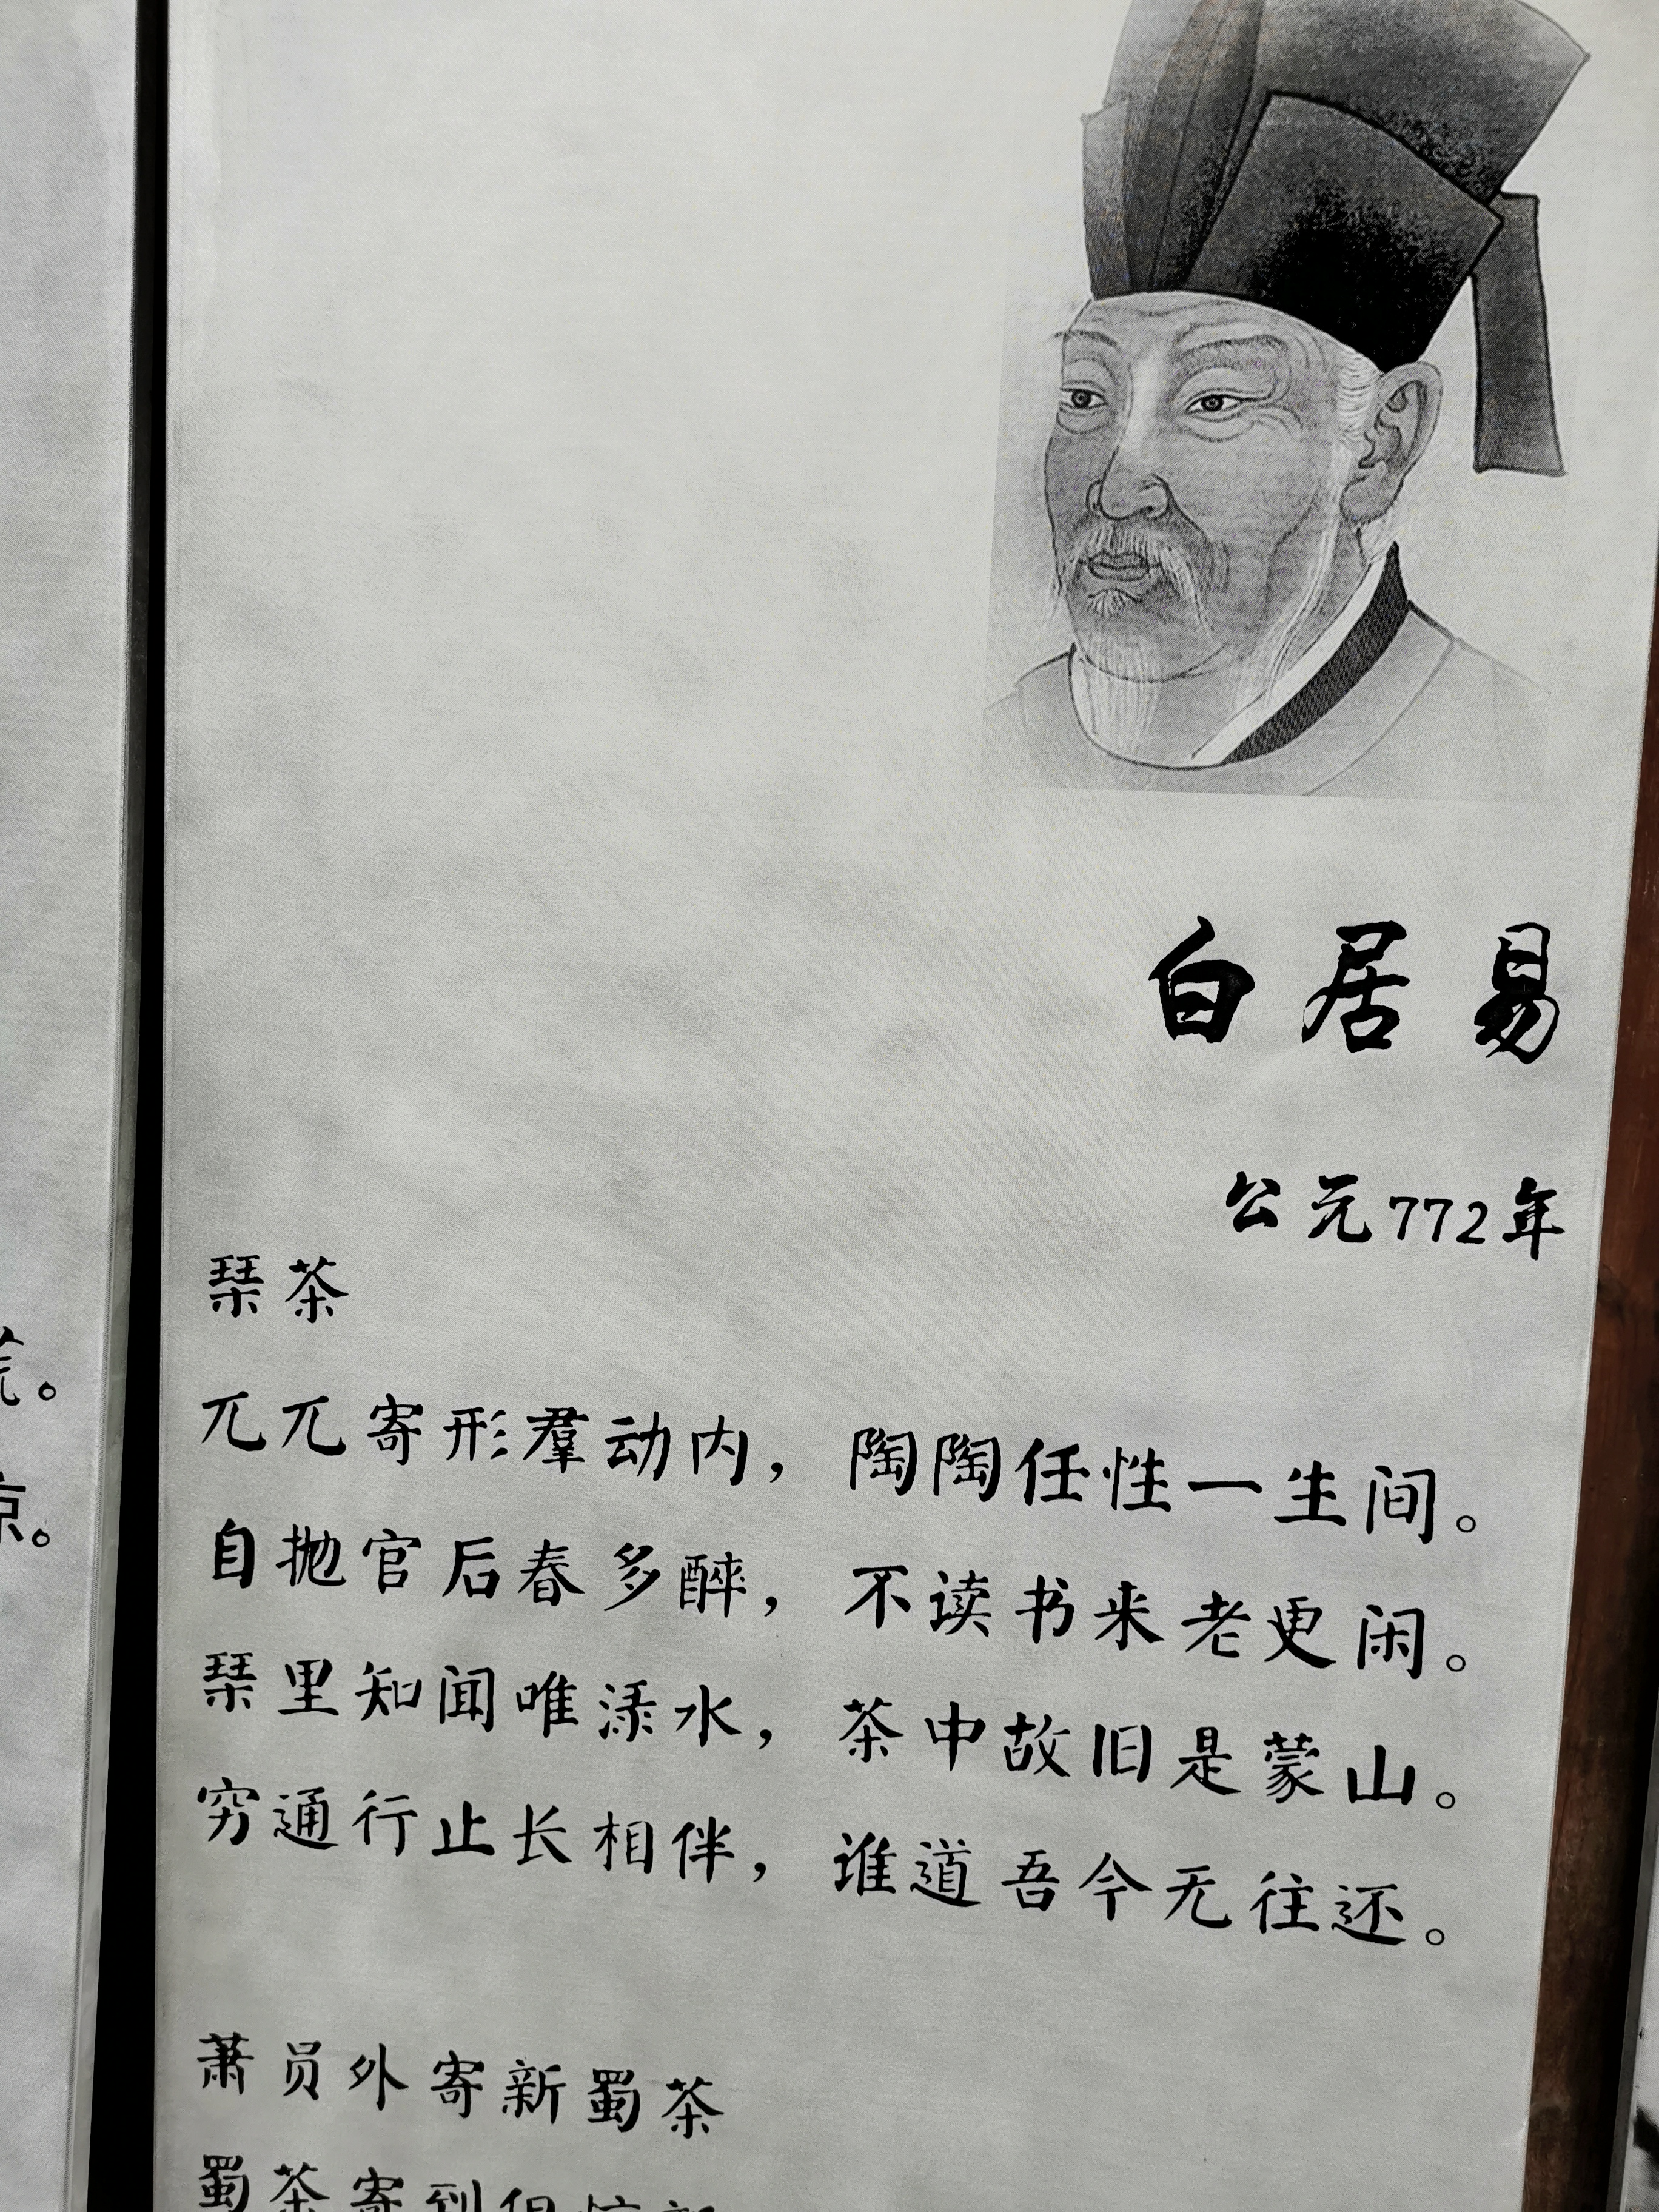 白居易
公元772年
琹茶
兀兀寄形羣动内，陶陶任性一生间。
自抛官后春多醉，不读书来老更闲。
琹里知闻唯渌水，茶中故旧是蒙山。
穷通行止长相伴，谁道吾今无往还。
萧员外寄新蜀茶
蜀茶寄到但惊新